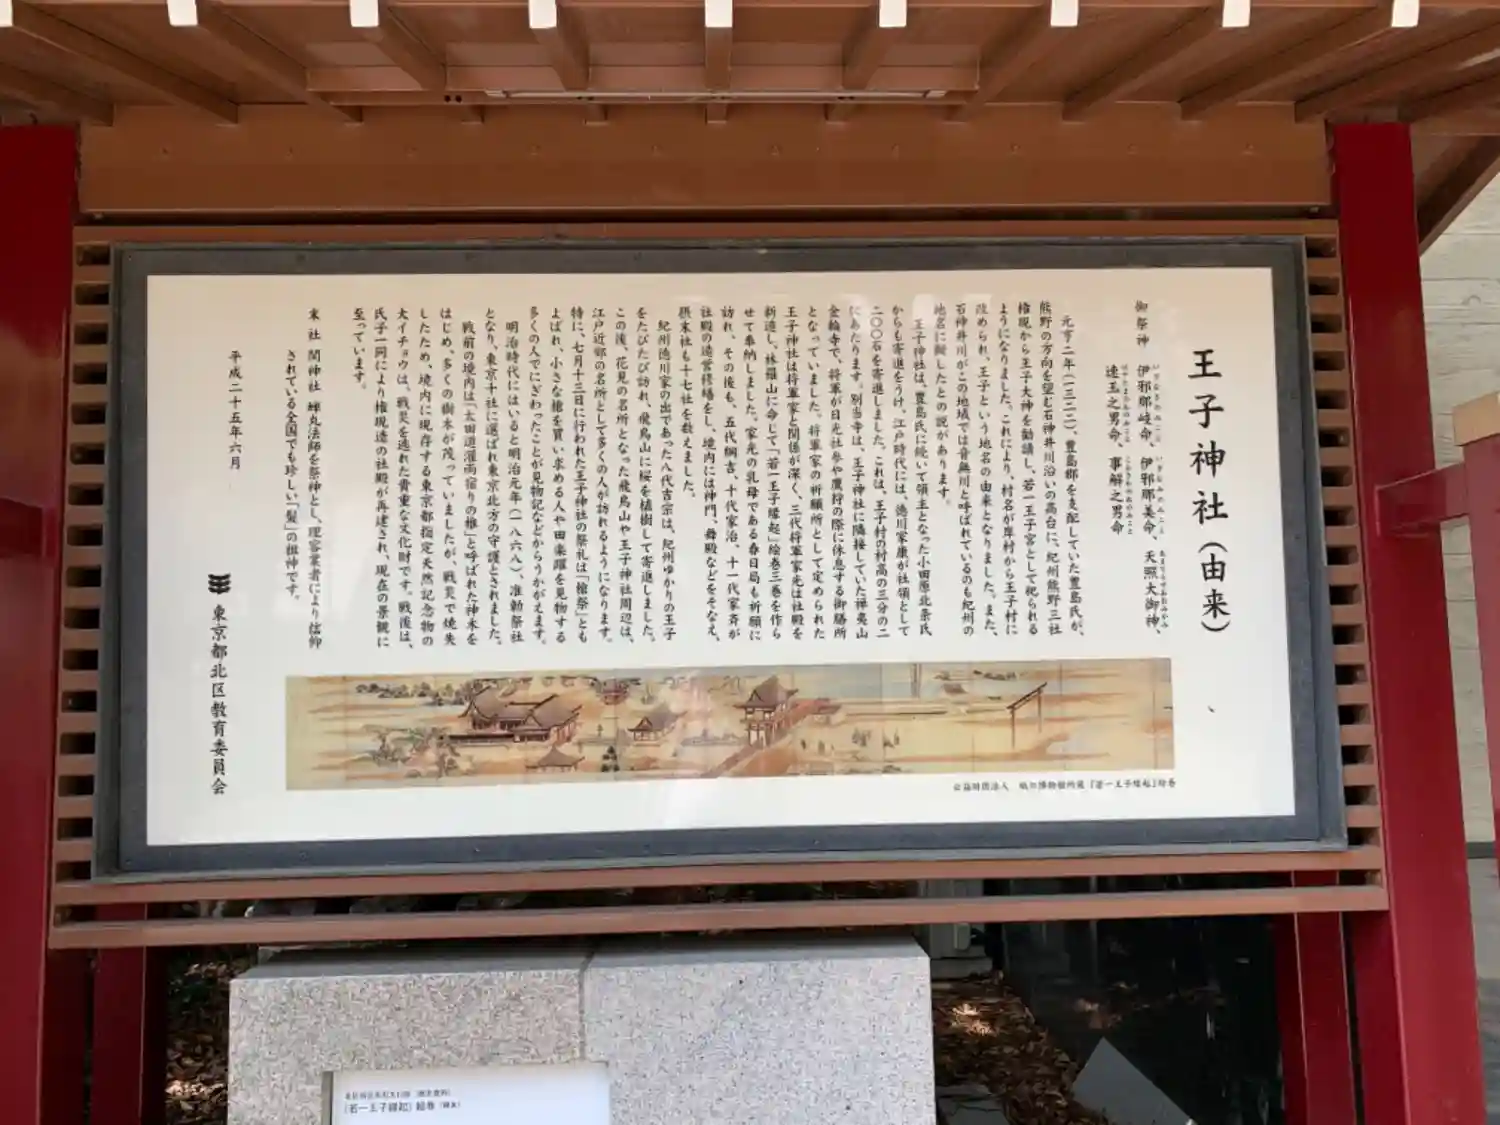 王子神社（由来）
御祭神　伊邪那岐命、伊邪那美命、天照大御神、
いざなぎのみこと　いざなみのみこと　あまてらすおおみかみ
速玉之男命、事解之男命
はやたまのおのみこと　ことさかのおのみこと
元亨二年（一三二二）、豊島郡を支配していた豊島氏が、
熊野の方向を望む石神井川沿いの高台に、紀州熊野三社
権現から王子大神を勧請し、若一王子宮として祀られる
ようになりました。これにより、村名が岸村から王子村に
改められ、王子という地名の由来となりました。また、
石神井川がこの地域では音無川と呼ばれているのも紀州の
地名に擬したとの説があります。
王子神社は、豊島氏に続いて領主となった小田原北条氏
からも寄進をうけ、江戸時代には、徳川家康が社領として
二〇〇石を寄進しました。これは、王子村の村高の三分の二
にあたります。別当寺は、王子神社に隣接していた禅夷山
金輪寺で、将軍が日光社参や鷹狩の際に休息する御膳所
となっていました。将軍家の祈願所として定められた
王子神社は将軍家と関係が深く、三代将軍家光は社殿を
新造し、林羅山に命じて「若一王子縁起」絵巻三巻を作ら
せて奉納しました。家光の乳母である春日局も祈願に
訪れ、その後も、五代綱吉、十代家治、十一代家斉が
社殿の造営修繕をし、境内には神門、舞殿などをそなえ、
摂末社も十七社を数えました。
紀州徳川家の出であった八代吉宗は、紀州ゆかりの王子
をたびたび訪れ、飛鳥山に桜を植樹して寄進しました。
この後、花見の名所となった飛鳥山や王子神社周辺は、
江戸近郊の名所として多くの人が訪れるようになります。
特に、七月十三日に行われた王子神社の祭礼は「槍祭」とも
よばれ、小さな槍を買い求める人や田楽躍を見物する
多くの人でにぎわったことが見物記などからうかがえます。
明治時代にはいると明治元年（一八六八）、准勅祭社
となり、東京十社に選ばれ東京北方の守護とされました。
戦前の境内は「太田道灌雨宿りの椎」と呼ばれた神木を
はじめ、多くの樹木が茂っていましたが、戦災で焼失
したため、境内に現存する東京都指定天然記念物の
大イチョウは、戦災を逃れた貴重な文化財です。戦後は、
氏子一同により権現造の社殿が再建され、現在の景観に
至っています。
末社　関神社　蝉丸法師を祭神とし、理容業者により信仰
されている全国でも珍しい「髪」の祖神です。
平成二十五年六月
東京都北区教育委員会
公益財団法人　紙の博物館所蔵『若一王子縁起』絵巻
《若一王子縁起》絵巻